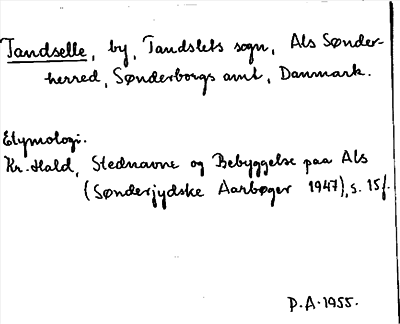 Tandselle, by, Tandslets sogn, Als Sønder-
herred, Sønderborgs amt, Danmark.
Etymologi.
Kr. Hald, Stednavne og Bebyggelse paa Als
(Sønderjydske Aarbøger 1947), s. 15f.
P.A. 1955.